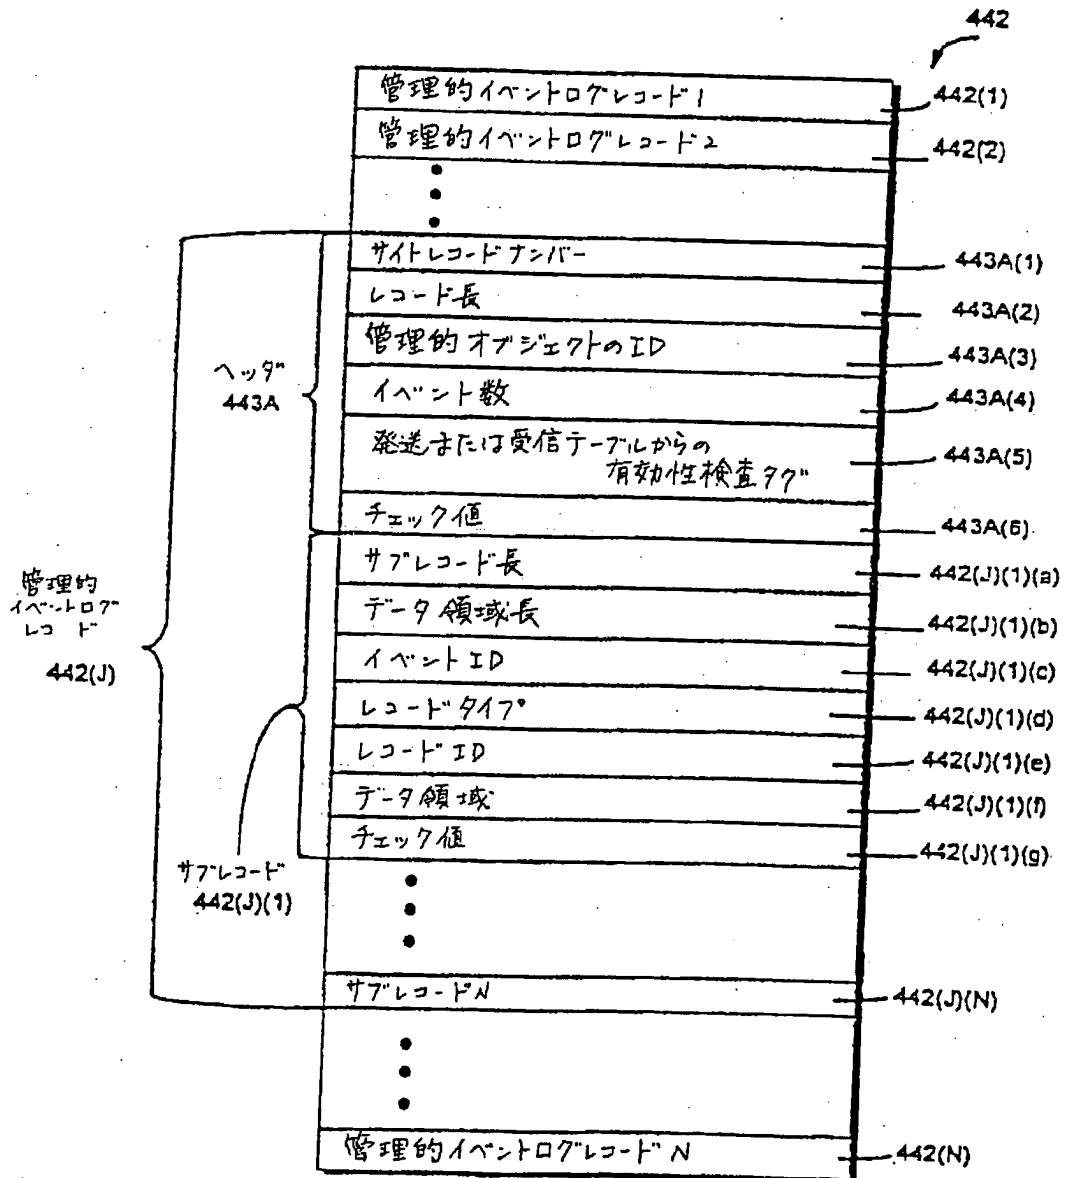 442
管理的イベントログレコード1
442(1)
管理的イベントログレコード2
442(2)
サイトレコードナンバー
443A(1)
レコード長
443A(2)
管理的オブジェクトのID
443A(3)
ヘッダ
443A
イベント数
443A(4)
発送または受信テーブルからの
有効性検査タグ
443A(5)
チェック値
443A(6)
サブレコード長
442(J)(1)(a)
管理的
イベントログ
レコード
442(J)
データ領域長
442(J)(1)(b)
イベントID
442(J)(1)(c)
レコードタイプ
442(J)(1)(d)
レコードID
442(J)(1)(e)
データ領域
442(J)(1)(f)
チェック値
442(J)(1)(g)
サブレコード
442(J)(1)
サブレコードN
442(J)(N)
管理的イベントログレコードN
442(N)